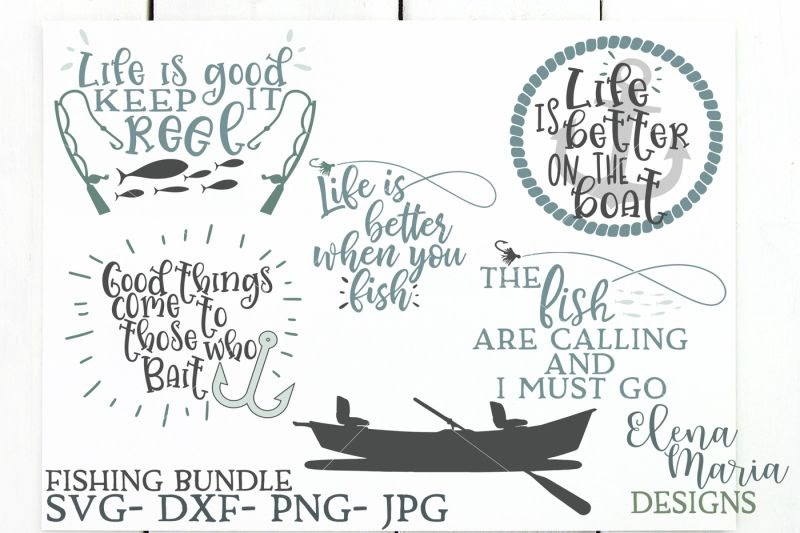 Life is good
KEEP IT
REEL
Life
IS better
ON THE
boat
Life is
better
when you
fish
Good things
come to
those who
Bait
THE
fish
ARE CALLING
AND
I MUST GO
Elena
Maria
DESIGNS
FISHING BUNDLE
SVG- DXF- PNG- JPG